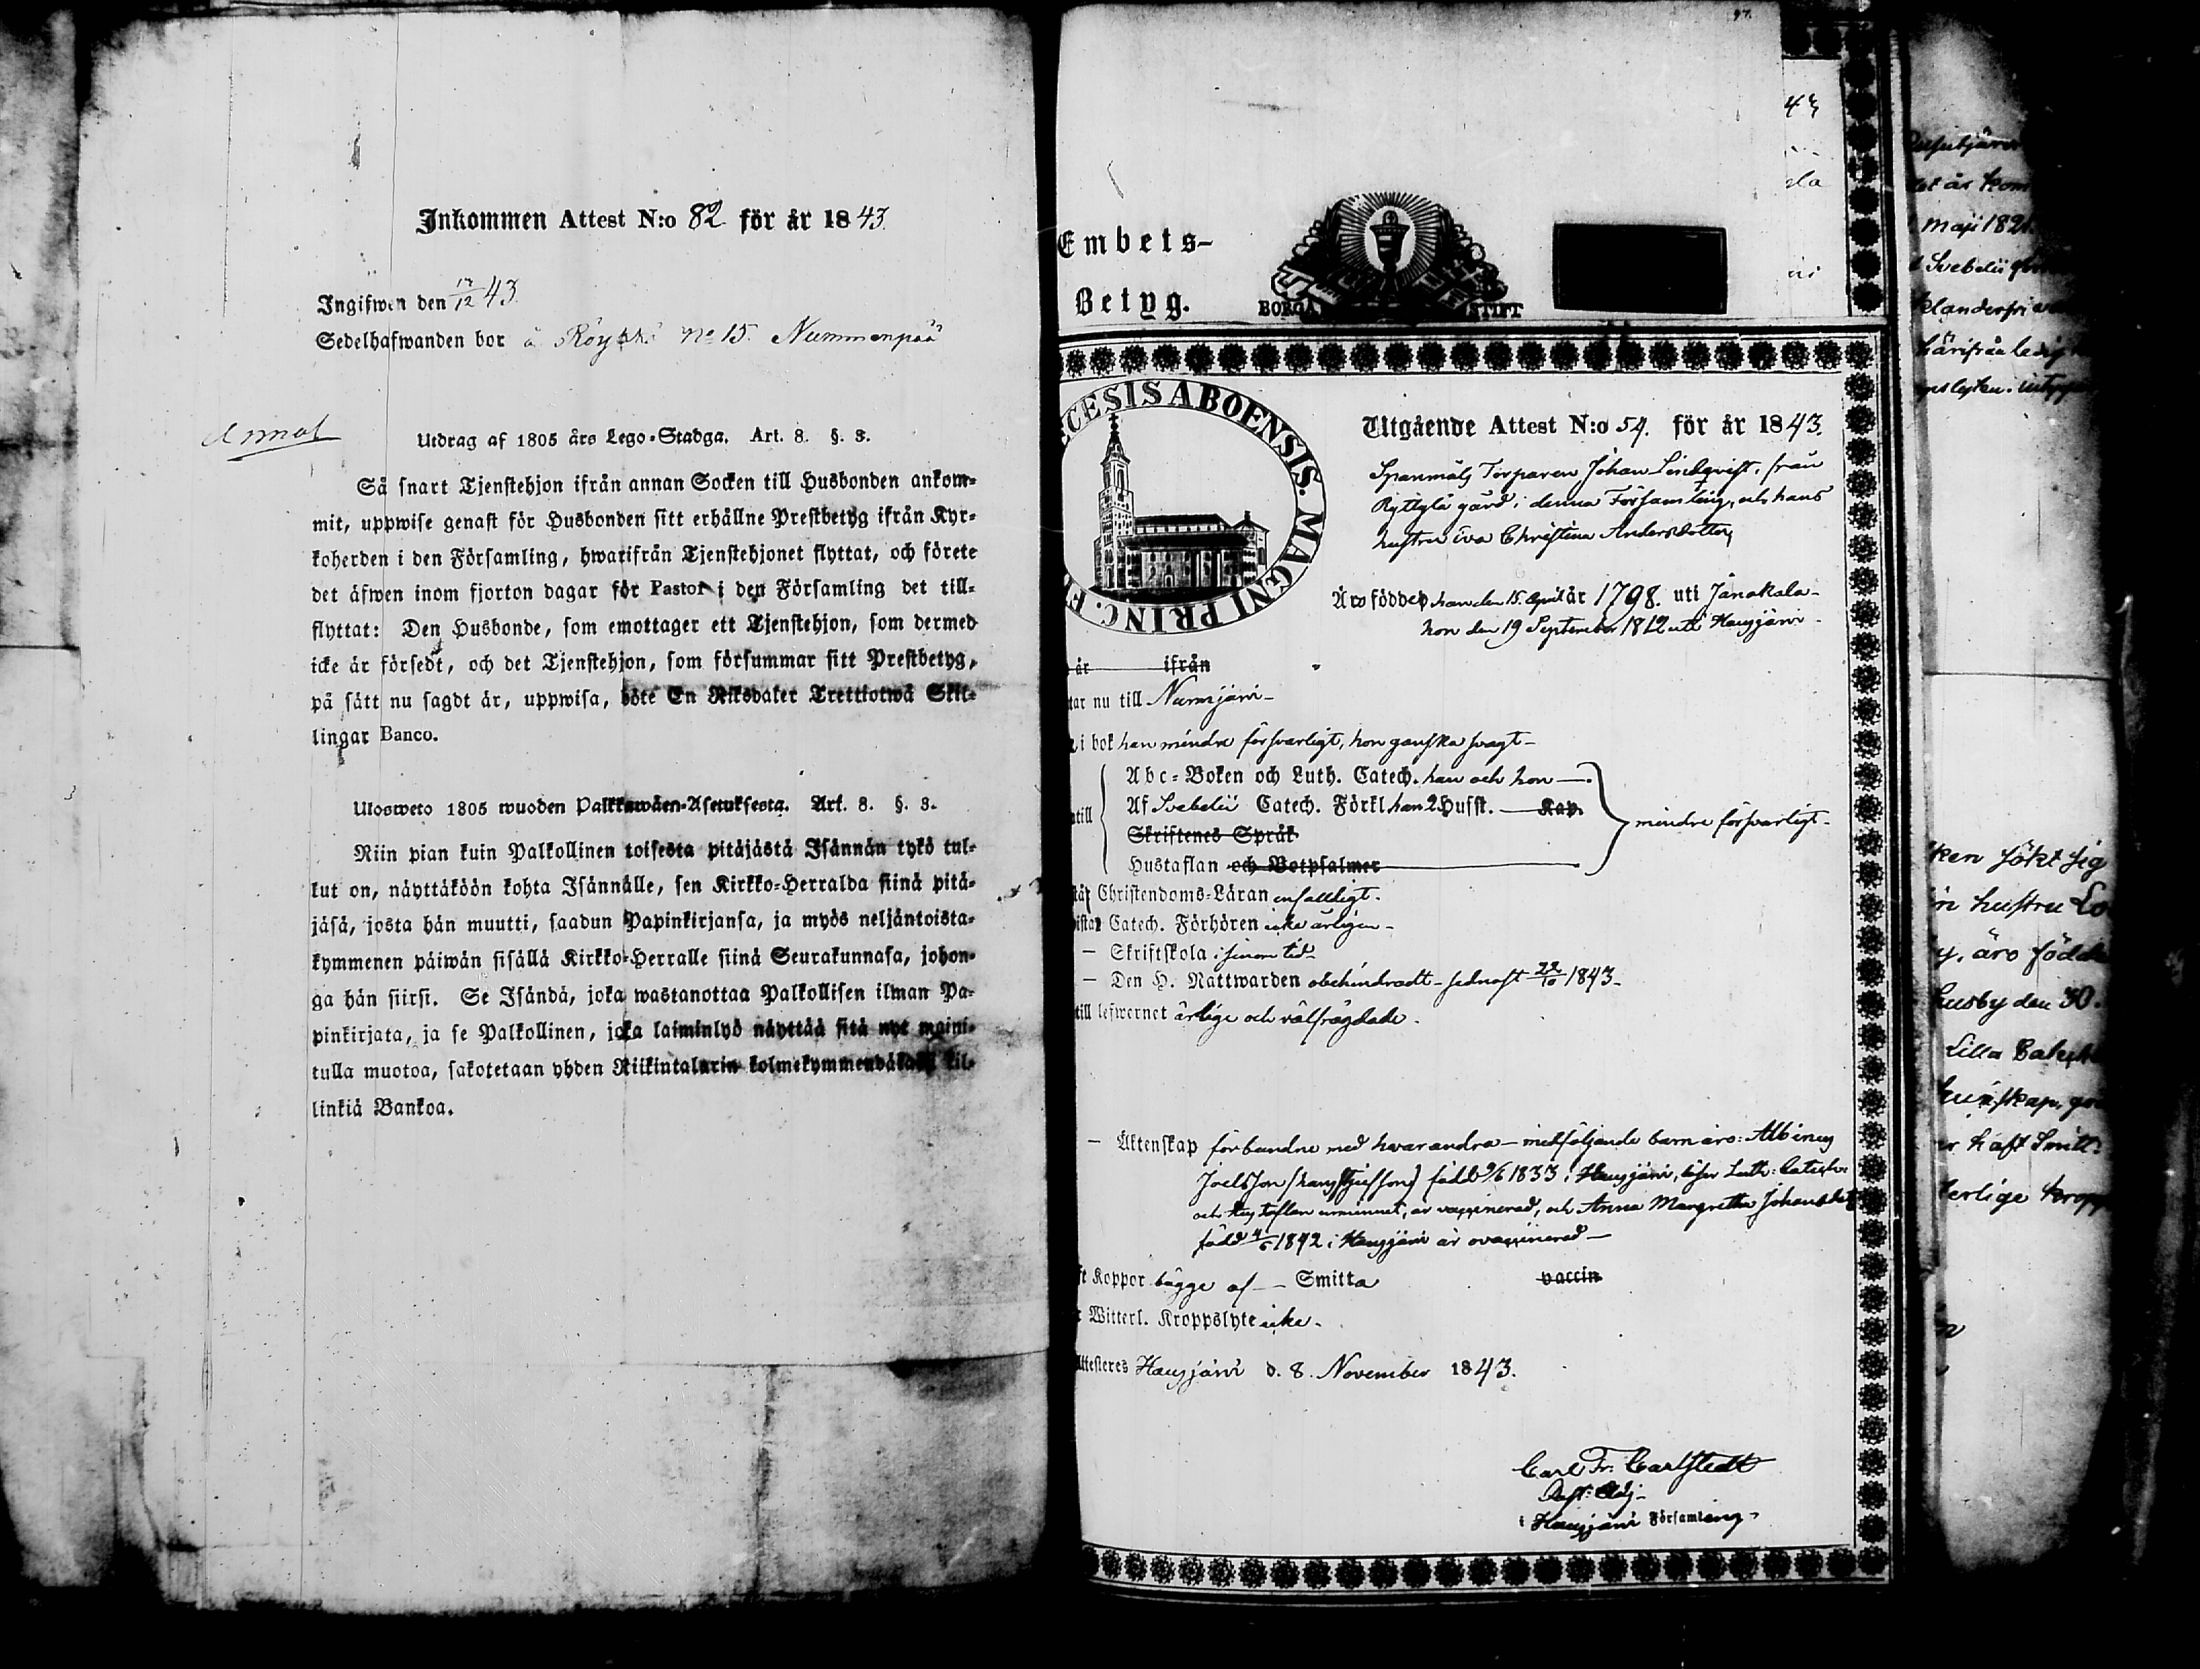 Inkommen Attest N:o 82 för år 1843.
Ingifwen den 17/12 43.
Sedelhafwanden bor å Röykkä No 15. Nummenpää
Utdrag af 1805 års Lego-Stadga. Art. 8. §. 3.
Så snart Tjenstehjon ifrån annan Socken till Husbonden ankom-
mit, uppwise genast för Husbonden sitt erhållne Prestbetyg ifrån Kyr-
koherden i den Församling, hwarifrån Tjenstehjonet flyttat, och förete
det äfwen inom fjorton dagar för Pastor i den Församling det till-
flyttat: Den Husbonde, som emottager ett Tjenstehjon, som dermed
icke är försedt, och det Tjenstehjon, som försummar sitt Prestbetyg,
på sätt nu sagdt är, uppwisa, böte En Riksdaler Trettiotwå Skil-
lingar Banco.
Ulosweto 1805 wuoden Palkkawäen-Asetuksesta. Art. 8. §. 3.
Niin pian kuin Palkollinen toisesta pitäjästä Isännän tykö tul-
lut on, näyttäköön kohta Isännälle, sen Kirkko-Herralda siinä pitä-
jäsä, josta hän muutti, saadun Papinkirjansa, ja myös neljäntoista-
kymmenen päiwän sisällä Kirkko-Herralle siinä Seurakunnasa, johon-
ga hän siirsi. Se Isändä, joka wastanottaa Palkollisen ilman Pa-
pinkirjata, ja se Palkollinen, joka laiminlyö näyttää sitä nyt maini-
tulla muotoa, sakotetaan yhden Riikintalarin kolmekymmendäkaksi kil-
linkiä Bankoa.
97.
Embets-
Betyg.
BORGÅ STIFT
CESIS ABOENSIS. MAGNI PRINC. F
Utgående Attest N:o 54. för år 1843.
Spanmåls Torparen Johan Lindqvist, från
Ryttylä gård i denna Församling, och hans
hustru Eva Christina Andersdotter,
Äro födde, han den 15. April år 1798. uti Janakala-
hon den 19 September 1812 uti Hausjärvi-
år ifrån
tar nu till Nurmijärvi-
i bok han mindre försvarligt, hon ganska svagt-
Abc-Boken och Luth. Catech. han och hon —.
Af Svebelii Catech. Förkl han 2 Hufst. — Kap.
Skriftenes Språk
Hustaflan och Botpsalmer
mindre försvarligt-
Christendoms-Läran enfalligt.
Catech. Förhören icke årligen-
— Skriftskola i sinom tid-
— Den H. Nattwarden obehindradt- sednast 22/10 1843-
till lefwernet ärlige och välfrägdade.
— Äktenskap förbundne med hvarandra- medföljande barn äro: Albinus
Joelsson (hans Styfson) född 9/6 1833 i Hausjärvi, läser Luth: Catech:
och Hustaflan urminnet, är vaccinerad, och Anna Margretha Johansdotr
född 4/5 1842 i Hausjärvi är ovaccinerad-
ft Koppor bägge af — Smitta vaccin
Witterl. Kroppslyte icke-
Attesteres Hausjärvi d. 8. November 1843.
Carl Fr. Carlstedt
Past: Adj-
i Hausjärvi Församling-
maji 1821.
härifrån ledig
ken sökt sig
hustru Lo
äro födde
husby den 30.
Lilla
haft Smitt: